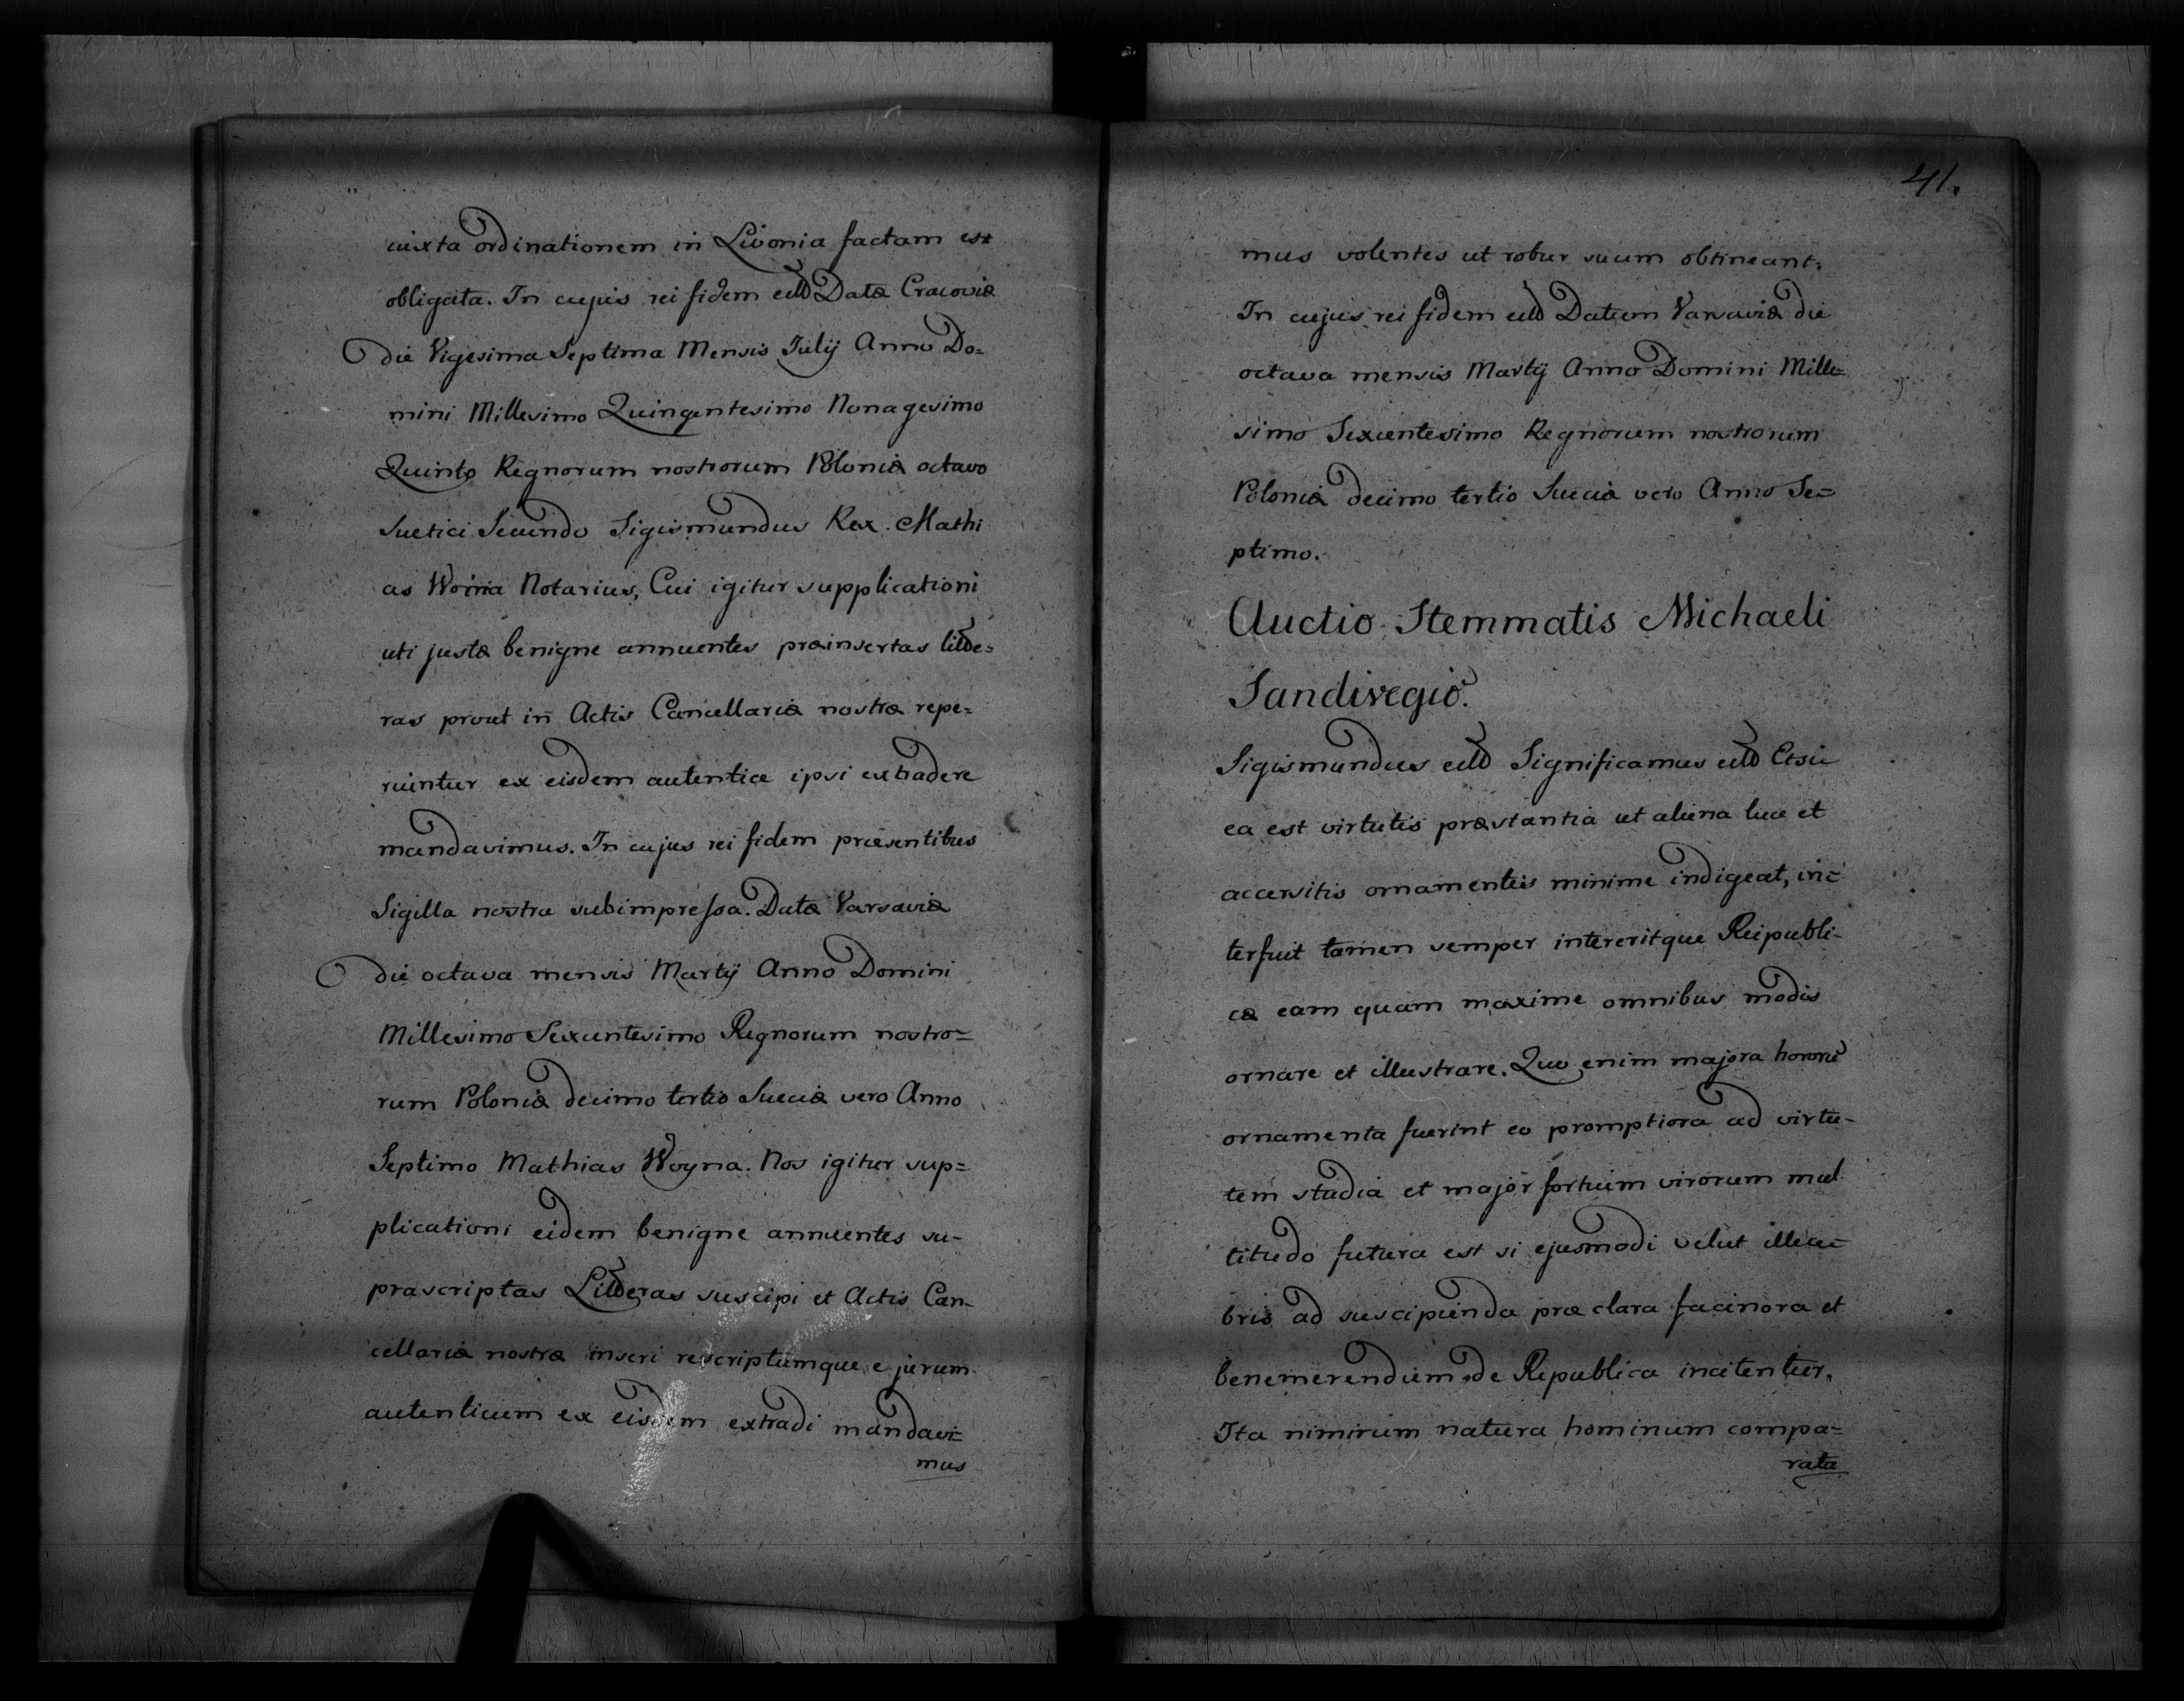 iuxta ordinationem in Livonia factam est
obligata. In cujus rei fidem etto Datæ Cracoviæ
die Vigesima Septima Mensis Julij Anno Do=
mini Millesimo Quingentesimo Nonagesimo
Quinto Regnorum nostrorum Poloniæ octavo
Suetici Secundo Sigismundus Rex. Mathi
as Woina Notarius, Cui igitur supplicationi
uti justæ benigne annuentes præinsertas litte=
ras prout in Actis Cancellariæ nostræ repe=
riuntur ex eisdem autentice ipsi extradere
mandavimus. In cujus rei fidem præsentibus
Sigilla nostra subimpressa. Datæ Varsaviæ
die octava mensis Martij Anno Domini
Millesimo Sexcentesimo Regnorum nostro=
rum Poloniæ decimo tertio Sueciæ vero Anno
Septimo Mathias Woyna. Nos igitur sup=
plicationi eidem benigne annuentes su-
prascriptas Litteras suscipi et Actis Can-
cellariæ nostræ inseri rescriptumque ejurum
autenticum ex eisdem extradi mandavi=
mus
41.
mus volentes ut robur suum obtineant.
In cujus rei fidem etto Datum Varsaviæ die
octava mensis Martij Anno Domini Mille=
simo Sexcentesimo Regnorum nostrorum
Poloniæ decimo tertio Sueciæ vero Anno Se=
ptimo.
Auctio Stemmatis Michaeli
Sandivegio.
Sigismundus etto Significamus etto Etsi
ea est virtutis præstantia ut aliena luce et
accersitis ornamentis minime indigeat, in=
terfuit tamen semper intereritque Reipubli-
cæ eam quam maxime omnibus modis
ornare et illustrare. Quo enim majora honorū
ornamenta fuerint eo promptiora ad virtu-
tem studia et major fortium virorum mul
titudo futura est si ejusmodi velut illece=
bris ad suscipienda præclara facinora et
benemerendum de Republica incitentur.
Ita nimirum natura hominum compa=
rata